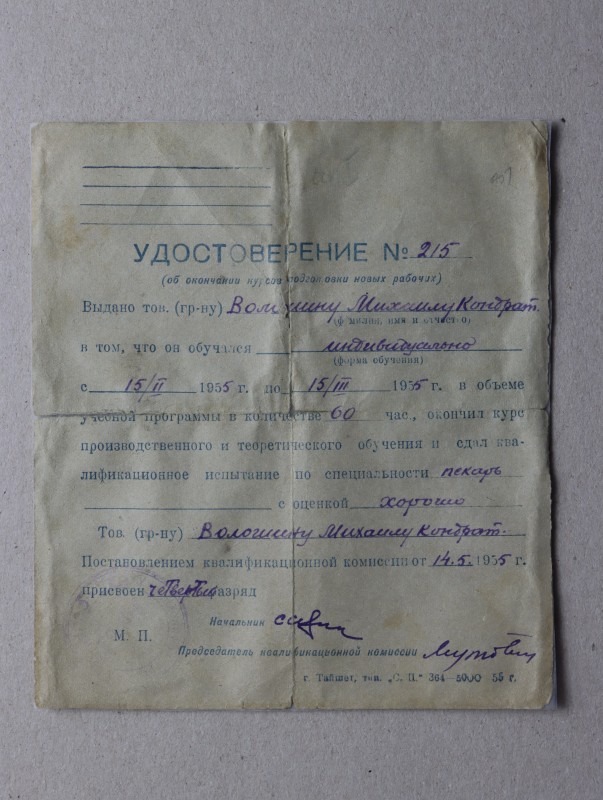 УДОСТОВЕРЕНИЕ № 215
(об окончании курсов подготовки новых рабочих)
Выдано тов. (гр-ну) Волошину Михаилу Кондрат.
(фамилия, имя и отчество)
в том, что он обучался индивитуально
(форма обучения)
с 15/II 1955 г. по 15/III 1955 г. в объеме
учебной программы в количестве 60 час., окончил курс
производственного и теоретического обучения и сдал ква-
лификационное испытание по специальности пекарь
с оценкой хорошо
Тов. (гр-ну) Волошину Михаилу Кондрат.
Постановлением квалификационной комиссии от 14.5.1955 г.
присвоен четвертый разряд
Начальник
М. П.
Председатель квалификационной комиссии
г. Тайшет, тип. „С. П." 364—5000 55 г.